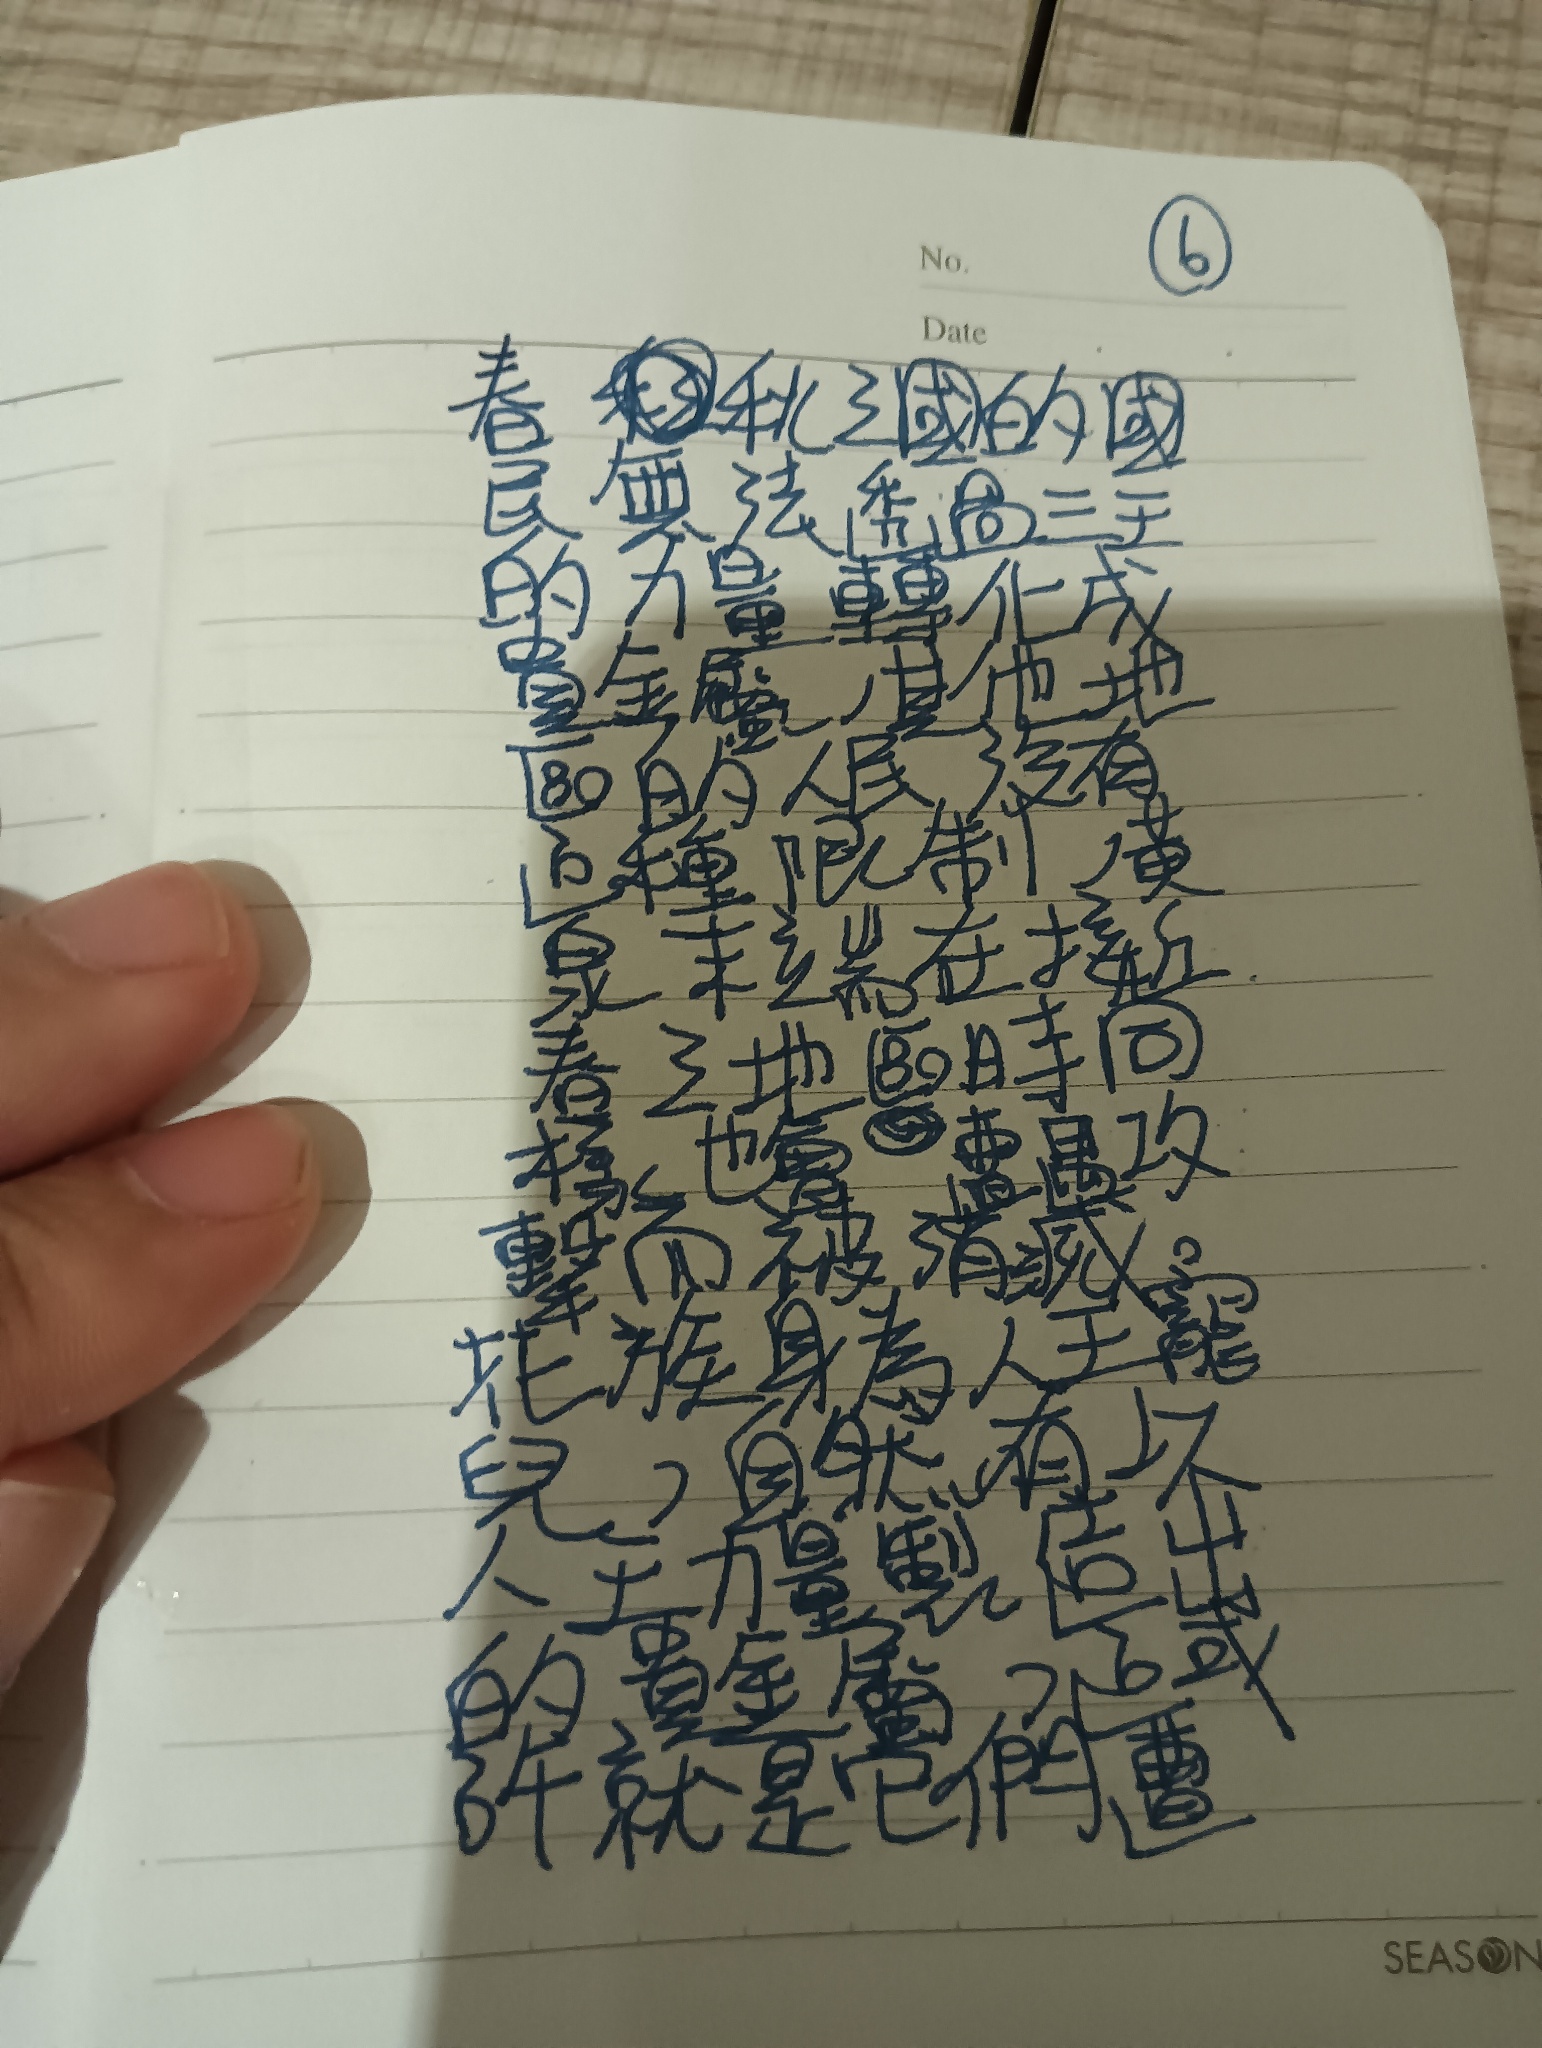 No. 6
Date
春秋之國的國
民無法透過三王
的力量轉化成
貴金屬,其他地
區的人民沒有
這種限制,黃
泉末端在接近
春之地區時同
樣也會遭遇攻
擊而被消滅。
花族身為人王寵
兒,自然有以
人王力量製造出
的貴金屬,這或
許就是它們遭
SEASON